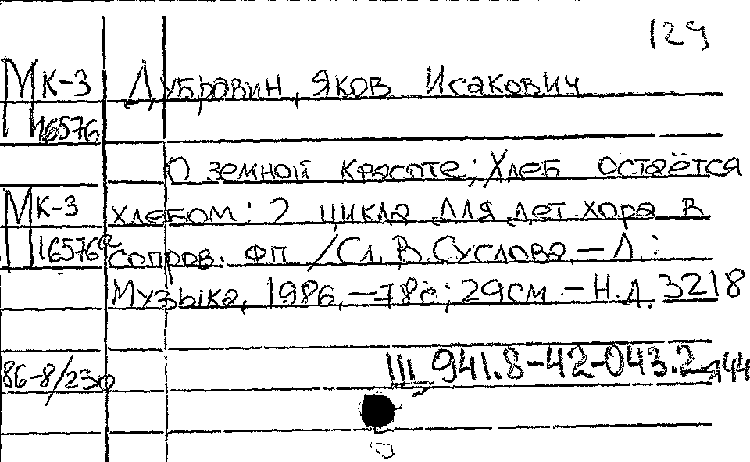 129
МК-3 Дубравин, Яков Исакович
П 16576
О земной красоте; Хлеб остаётся
МК-3 хлебом: 2 цикла для дет хора в
П 16576а сопров. фп /Сл. В. Суслова – Л.:
Музыка, 1986, – 78с; 29см – Н.д. 3218
86-8/230 III 941.8-42-043.2